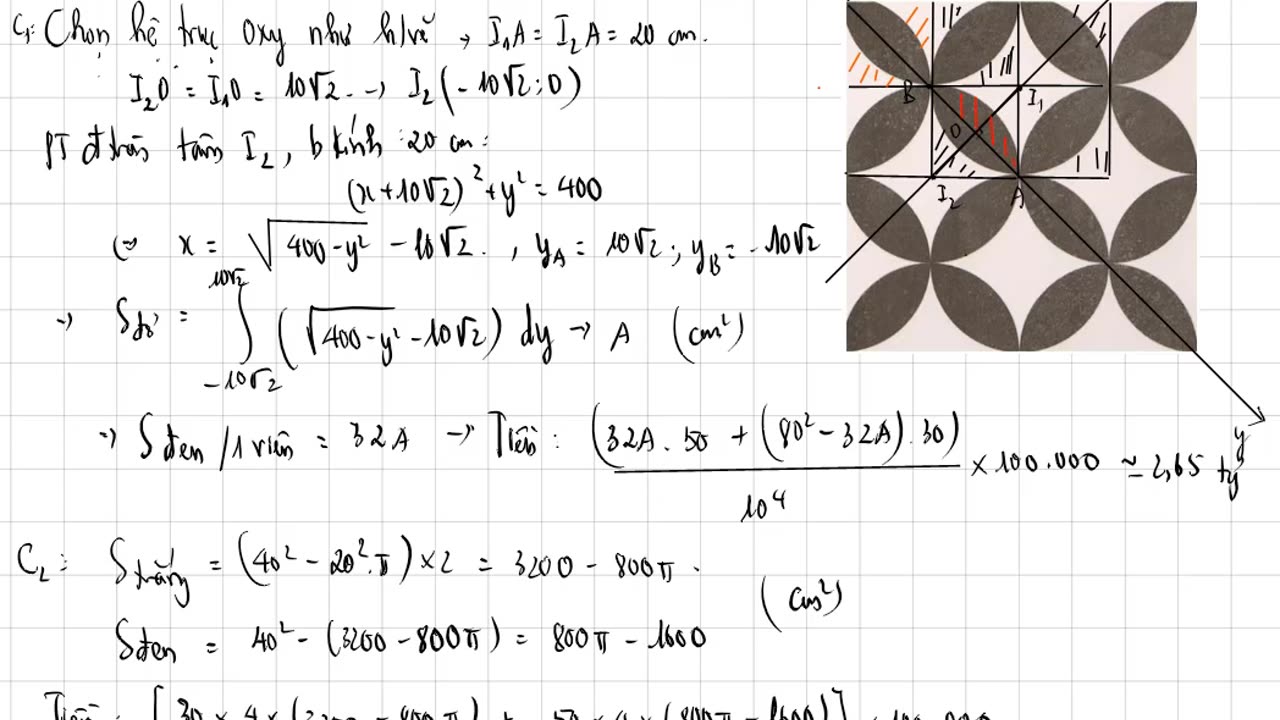 C₁: Chọn hệ trục Oxy như h/vẽ, I₁A = I₂A = 20 cm.
I₂O = I₁O = 10√2. → I₂(-10√2; 0)
PT đ tròn tâm I₂, b kính 20 cm:
(x+10√2)² + y² = 400
(=) x = √(400-y²) - 10√2. , y_A = 10√2; y_B = -10√2
→ S = ∫_{-10√2}^{10√2} (√(400-y²) - 10√2) dy → A (cm²)
=) S đen /1 viên = 32A → Tiền: (32A . 50 + (80² - 32A) . 30) / 10⁴ × 100.000 ≃ 2,65 tỷ
C₂: S trắng = (40² - 20².π) × 2 = 3200 - 800π.
(cm²)
S đen = 40² - (3200 - 800π) = 800π - 1600
B
I₁
O
I₂
A
y